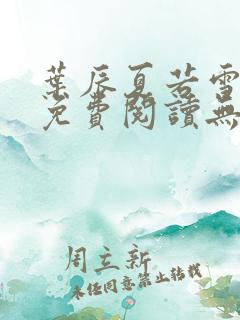 葉辰夏若雪
免費閱讀無
周立新
未經同意禁止轉載